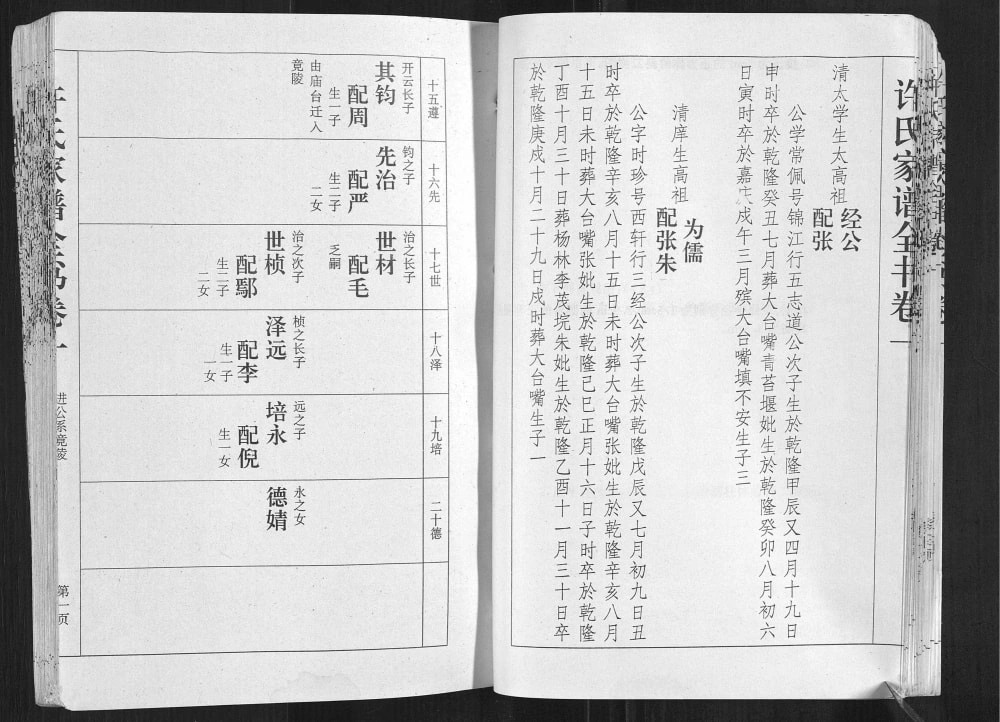 许氏家谱全书卷一
清太学生太高祖
经公
配张
公学常佩号锦江行五志道公次子生於乾隆甲辰又四月十九日
申时卒於乾隆癸丑七月葬大台嘴青苔堰妣生於乾隆癸卯八月初六
日寅时卒於嘉庆戌午三月殡大台嘴填不安生子三
清庠生太高祖
为儒
配张朱
公字时珍号西轩行三经公次子生於乾隆戊辰又七月初九日丑
时卒於乾隆辛亥八月十五日未时葬大台嘴张妣生於乾隆辛亥八月
十五日未时葬大台嘴张妣生於乾隆己巳正月十六日子时卒於乾隆
丁酉十月三十日葬杨林李茂垸朱妣生於乾隆乙酉十一月三十日卒
於乾隆庚戍十月二十九日戍时葬大台嘴生子一
十五遵
开云长子
其钧
配周
生一子
由庙台迁人
竟陵
十六先
钧之子
先治
配严
生二子
二女
十七世
治之长子
世材
配毛
乏嗣
治之次子
世桢
配鄢
生二子
二女
十八泽
桢之长子
泽远
配李
生一子
一女
十九培
远之子
培永
配倪
生一女
二十德
永之女
德婧
进公系竟陵
第一页